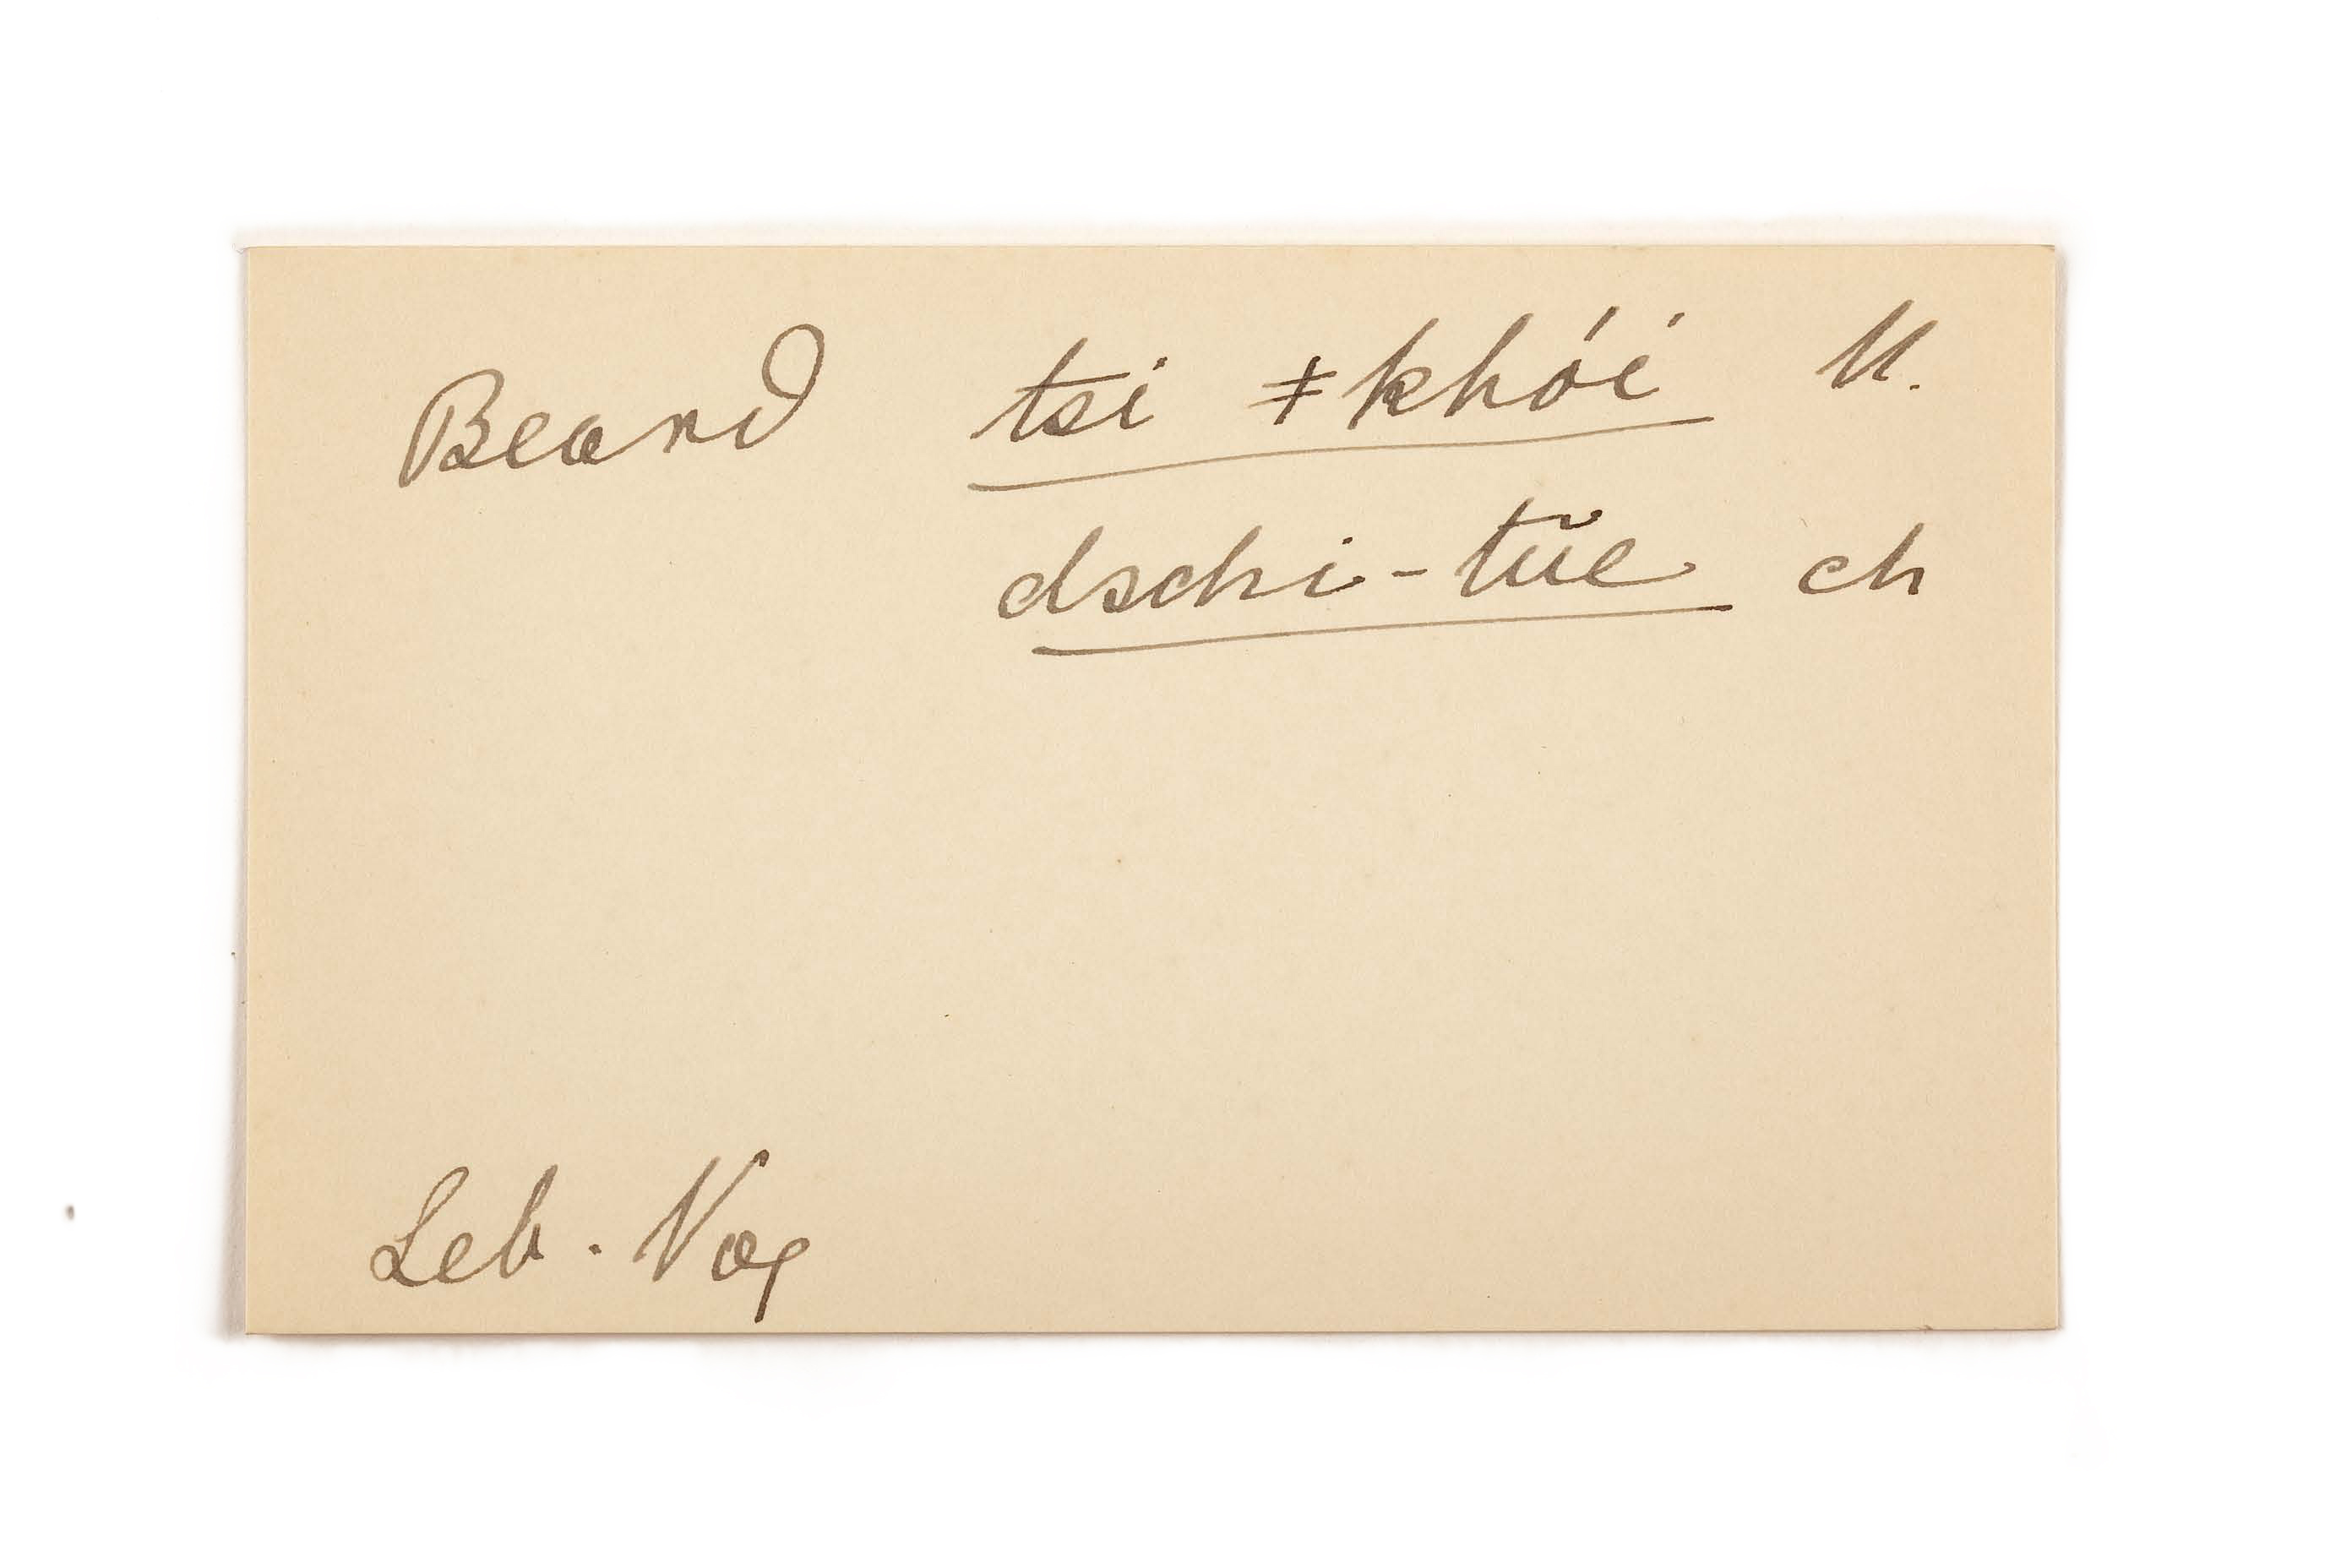 Beard tsi ǂkhói M.
dschi-tŭe ch
Leb. Vog